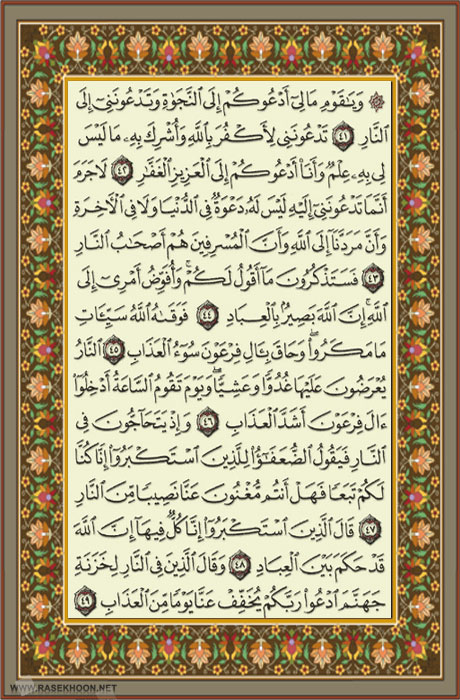 ۞ وَيَـٰقَوْمِ مَا لِىٓ أَدْعُوكُمْ إِلَى ٱلنَّجَوٰةِ وَتَدْعُونَنِىٓ إِلَى
ٱلنَّارِ ٤١ تَدْعُونَنِى لِأَكْفُرَ بِٱللَّهِ وَأُشْرِكَ بِهِۦ مَا لَيْسَ
لِى بِهِۦ عِلْمٌ وَأَنَا۠ أَدْعُوكُمْ إِلَى ٱلْعَزِيزِ ٱلْغَفَّـٰرِ ٤٢ لَا جَرَمَ
أَنَّمَا تَدْعُونَنِىٓ إِلَيْهِ لَيْسَ لَهُۥ دَعْوَةٌ فِى ٱلدُّنْيَا وَلَا فِى ٱلْـَٔاخِرَةِ
وَأَنَّ مَرَدَّنَآ إِلَى ٱللَّهِ وَأَنَّ ٱلْمُسْرِفِينَ هُمْ أَصْحَـٰبُ ٱلنَّارِ
٤٣ فَسَتَذْكُرُونَ مَآ أَقُولُ لَكُمْ ۚ وَأُفَوِّضُ أَمْرِىٓ إِلَى
ٱللَّهِ ۚ إِنَّ ٱللَّهَ بَصِيرٌۢ بِٱلْعِبَادِ ٤٤ فَوَقَىٰهُ ٱللَّهُ سَيِّـَٔاتِ
مَا مَكَرُوا۟ ۖ وَحَاقَ بِـَٔالِ فِرْعَوْنَ سُوٓءُ ٱلْعَذَابِ ٤٥ ٱلنَّارُ
يُعْرَضُونَ عَلَيْهَا غُدُوًّا وَعَشِيًّا ۖ وَيَوْمَ تَقُومُ ٱلسَّاعَةُ أَدْخِلُوٓا۟
ءَالَ فِرْعَوْنَ أَشَدَّ ٱلْعَذَابِ ٤٦ وَإِذْ يَتَحَآجُّونَ فِى
ٱلنَّارِ فَيَقُولُ ٱلضُّعَفَـٰٓؤُا۟ لِلَّذِينَ ٱسْتَكْبَرُوٓا۟ إِنَّا كُنَّا
لَكُمْ تَبَعًا فَهَلْ أَنتُم مُّغْنُونَ عَنَّا نَصِيبًا مِّنَ ٱلنَّارِ
٤٧ قَالَ ٱلَّذِينَ ٱسْتَكْبَرُوٓا۟ إِنَّا كُلٌّ فِيهَآ إِنَّ ٱللَّهَ
قَدْ حَكَمَ بَيْنَ ٱلْعِبَادِ ٤٨ وَقَالَ ٱلَّذِينَ فِى ٱلنَّارِ لِخَزَنَةِ
جَهَنَّمَ ٱدْعُوا۟ رَبَّكُمْ يُخَفِّفْ عَنَّا يَوْمًا مِّنَ ٱلْعَذَابِ ٤٩
WWW.RASEKHOON.NET